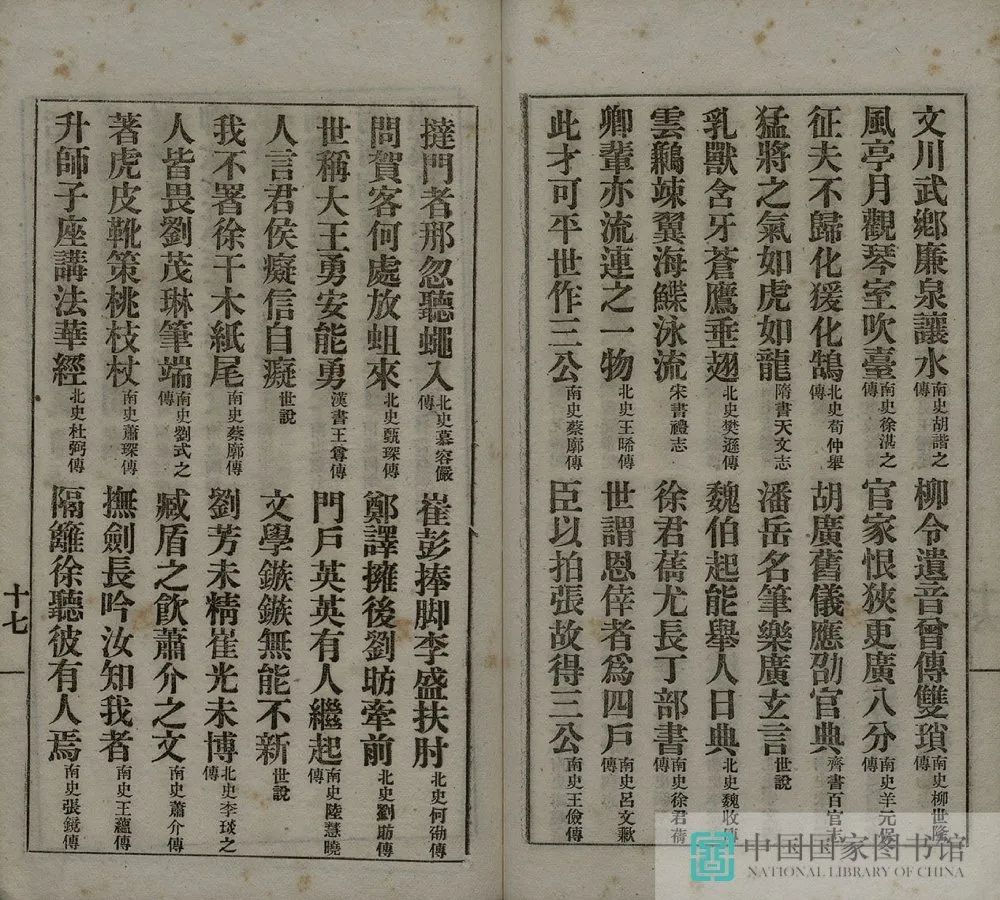 文川武鄉廉泉讓水南史胡諧之傳　柳令遺音曾傳雙瑣南史柳世隆傳
風亭月觀琴室吹臺南史徐湛之傳　官家恨狹更廣八分南史羊元保傳
征夫不歸化猨化鵠北史荀仲舉傳　胡廣舊儀應劭官典齊書百官志
猛將之氣如虎如龍隋書天文志　潘岳名筆樂廣玄言世說
乳獸含牙蒼鷹垂翅北史樊遜傳　魏伯起能舉人日典北史魏收傳
雲鶼竦翼海鰈泳流宋書禮志　徐君蒨尤長丁部書南史徐君蒨傳
卿輩亦流連之一物北史王晞傳　世謂恩倖者為四戶南史呂文歜傳
此才可平世作三公南史蔡廓傳　臣以拍張故得三公南史王儉傳
撻門者那忽聽蠅入北史慕容儼傳　崔彭捧脚李盛扶肘北史何妥傳
問賀客何處放蛆來北史甄琛傳　鄭譯擁後劉昉牽前北史劉昉傳
世稱大王勇安能勇漢書王尊傳　門戶英英有人繼起南史陸慧曉傳
人言君侯癡信自癡世說　文學鏃鏃無能不新世說
我不署徐干木紙尾南史蔡廓傳　劉芳未精崔光未博北史李琰之傳
人皆畏劉茂琳筆端南史劉式之傳　臧盾之飲蕭介之文南史蕭介傳
著虎皮靴策桃枝杖南史蕭琛傳　撫劍長吟汝知我者南史王蘊傳
升師子座講法華經北史杜弼傳　隔籬徐聽彼有人焉南史張鏡傳
十七
中国国家图书馆
NATIONAL LIBRARY OF CHINA